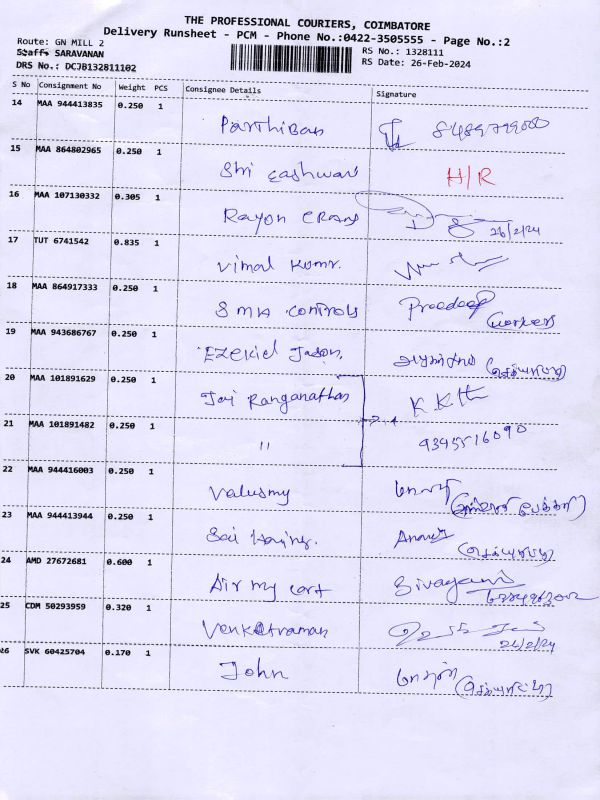 THE PROFESSIONAL COURIERS, COIMBATORE
Delivery Runsheet - PCM - Phone No.:0422-3505555 - Page No.:2
Route: GN MILL 2
Staff: SARAVANAN
RS No.: 1328111
DRS No.: DCJB132811102
RS Date: 26-Feb-2024
S No Consignment No Weight PCS Consignee Details Signature
14 MAA 944413835 0.250 1 Parthiban
15 MAA 864802965 0.250 1 Shri eashwari H/R
16 MAA 107130332 0.305 1 Rayon Erans 26/2/24
17 TUT 6741542 0.835 1 Vimal Kumr.
18 MAA 864917333 0.250 1 SMK controls Pradeep
19 MAA 943686767 0.250 1 Ezekiel Jason.
20 MAA 101891629 0.250 1 Jai Ranganathan
21 MAA 101891482 0.250 1 " 9345516090
22 MAA 944416003 0.250 1 Valusmy
23 MAA 944413944 0.250 1 Sai
24 AMD 27672681 0.600 1 Air my cart Sivagami
25 CDM 50293959 0.320 1 Venkatraman
26 SVK 60425704 0.170 1 John